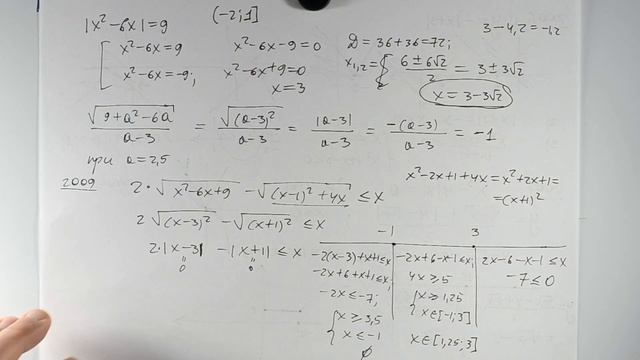 |x² - 6x| = 9    (-2; 1]    3 - 4,2 = -1,2
[ x² - 6x = 9    x² - 6x - 9 = 0    D = 36 + 36 = 72;
x² - 6x = -9;    x² - 6x + 9 = 0    x₁,₂ = { (6 ± 6√2)/2 = 3 ± 3√2
x = 3    x = 3 - 3√2
√(9 + a² - 6a)/(a - 3) = √((a - 3)²)/(a - 3) = |a - 3|/(a - 3) = -(a - 3)/(a - 3) = -1
при a = 2,5
2009    2·√(x² - 6x + 9) - √((x - 1)² + 4x) ≤ x    x² - 2x + 1 + 4x = x² + 2x + 1 =
= (x + 1)²
2√((x - 3)²) - √((x + 1)²) ≤ x
-1    3
2·|x - 3| - |x + 1| ≤ x    -2(x - 3) + x + 1 ≤ x    -2x + 6 - x - 1 ≤ x;    2x - 6 - x - 1 ≤ x
0    0    -2x + 6 + x + 1 ≤ x;    4x ≥ 5    -7 ≤ 0
-2x ≤ -7;    { x ≥ 1,25
{ x ≥ 3,5    x ∈ [-1; 3]
x ≤ -1    x ∈ [1,25; 3]
∅